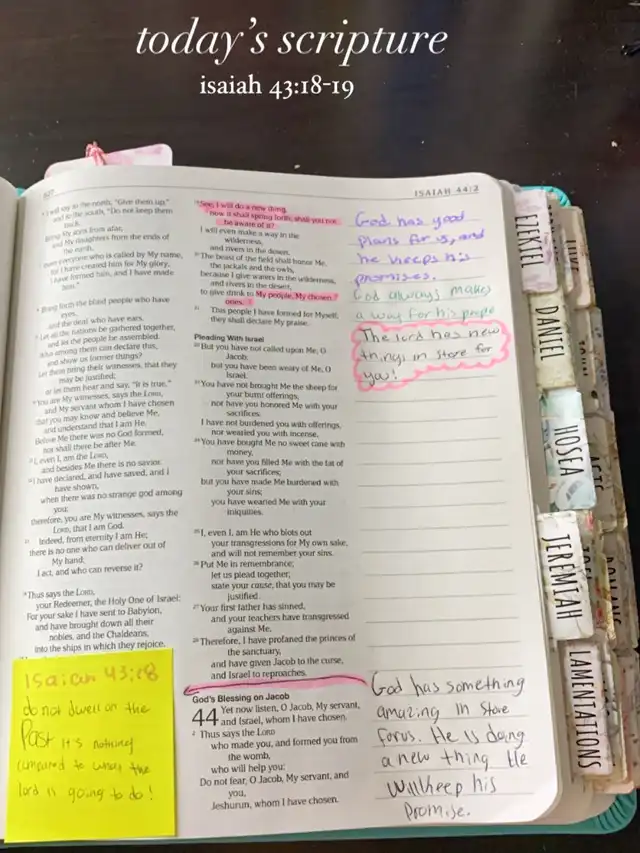 today's scripture
isaiah 43:18-19
ISAIAH 44:2
I will say to the north, "Give them up,"
and to the south, "Do not keep them
back."
Bring My sons from afar,
and My daughters from the ends of
the earth,
everyone who is called by My name,
for I have created him for My glory,
I have formed him, and I have made
him."
Bring forth the blind people who have
eyes,
and the deaf who have ears.
Let all the nations be gathered together,
and let the people be assembled.
Who among them can declare this,
and show us former things?
Let them bring their witnesses, that they
may be justified;
or let them hear and say, "It is true."
You are My witnesses, says the LORD,
and My servant whom I have chosen
that you may know and believe Me,
and understand that I am He.
Before Me there was no God formed,
nor shall there be after Me.
I, even I, am the LORD,
and besides Me there is no savior.
I have declared, and have saved, and I
have shown,
when there was no strange god among
you;
therefore, you are My witnesses, says the
LORD, that I am God.
Indeed, from eternity I am He;
there is no one who can deliver out of
My hand;
I act, and who can reverse it?
Thus says the LORD,
your Redeemer, the Holy One of Israel:
For your sake I have sent to Babylon,
and have brought down all their
nobles, and the Chaldeans,
into the ships in which they rejoice.
Isaiah 43:18
do not dwell on the
Past it's nothing
compared to what the
lord is going to do!
See, I will do a new thing,
now it shall spring forth; shall you not
be aware of it?
I will even make a way in the
wilderness,
and rivers in the desert.
20 The beast of the field shall honor Me,
the jackals and the owls,
because I give waters in the wilderness,
and rivers in the desert,
to give drink to My people, My chosen
ones.
21 This people I have formed for Myself;
they shall declare My praise.
Pleading With Israel
22 But you have not called upon Me, O
Jacob;
but you have been weary of Me, O
Israel.
23 You have not brought Me the sheep for
your burnt offerings,
nor have you honored Me with your
sacrifices.
I have not burdened you with offerings,
nor wearied you with incense.
24 You have bought Me no sweet cane with
money,
nor have you filled Me with the fat of
your sacrifices;
but you have made Me burdened with
your sins;
you have wearied Me with your
iniquities.
25 I, even I, am He who blots out
your transgressions for My own sake,
and will not remember your sins.
26 Put Me in remembrance;
let us plead together;
state your cause, that you may be
justified.
27 Your first father has sinned,
and your teachers have transgressed
against Me.
28 Therefore, I have profaned the princes of
the sanctuary,
and have given Jacob to the curse,
and Israel to reproaches.
God's Blessing on Jacob
44 Yet now listen, O Jacob, My servant,
and Israel, whom I have chosen.
2 Thus says the LORD
who made you, and formed you from
the womb,
who will help you:
Do not fear, O Jacob, My servant, and
you,
Jeshurun, whom I have chosen.
God has good
plans for us, and
he keeps his
promises.
God always makes
a way for his people
The lord has new
things in store for
you!
God has something
amazing in store
for us. He is doing
a new thing He
will keep his
promise.
EZEKIEL
DANIEL
HOSEA
JEREMIAH
LAMENTATIONS
LUKE
JOHN
ACTS